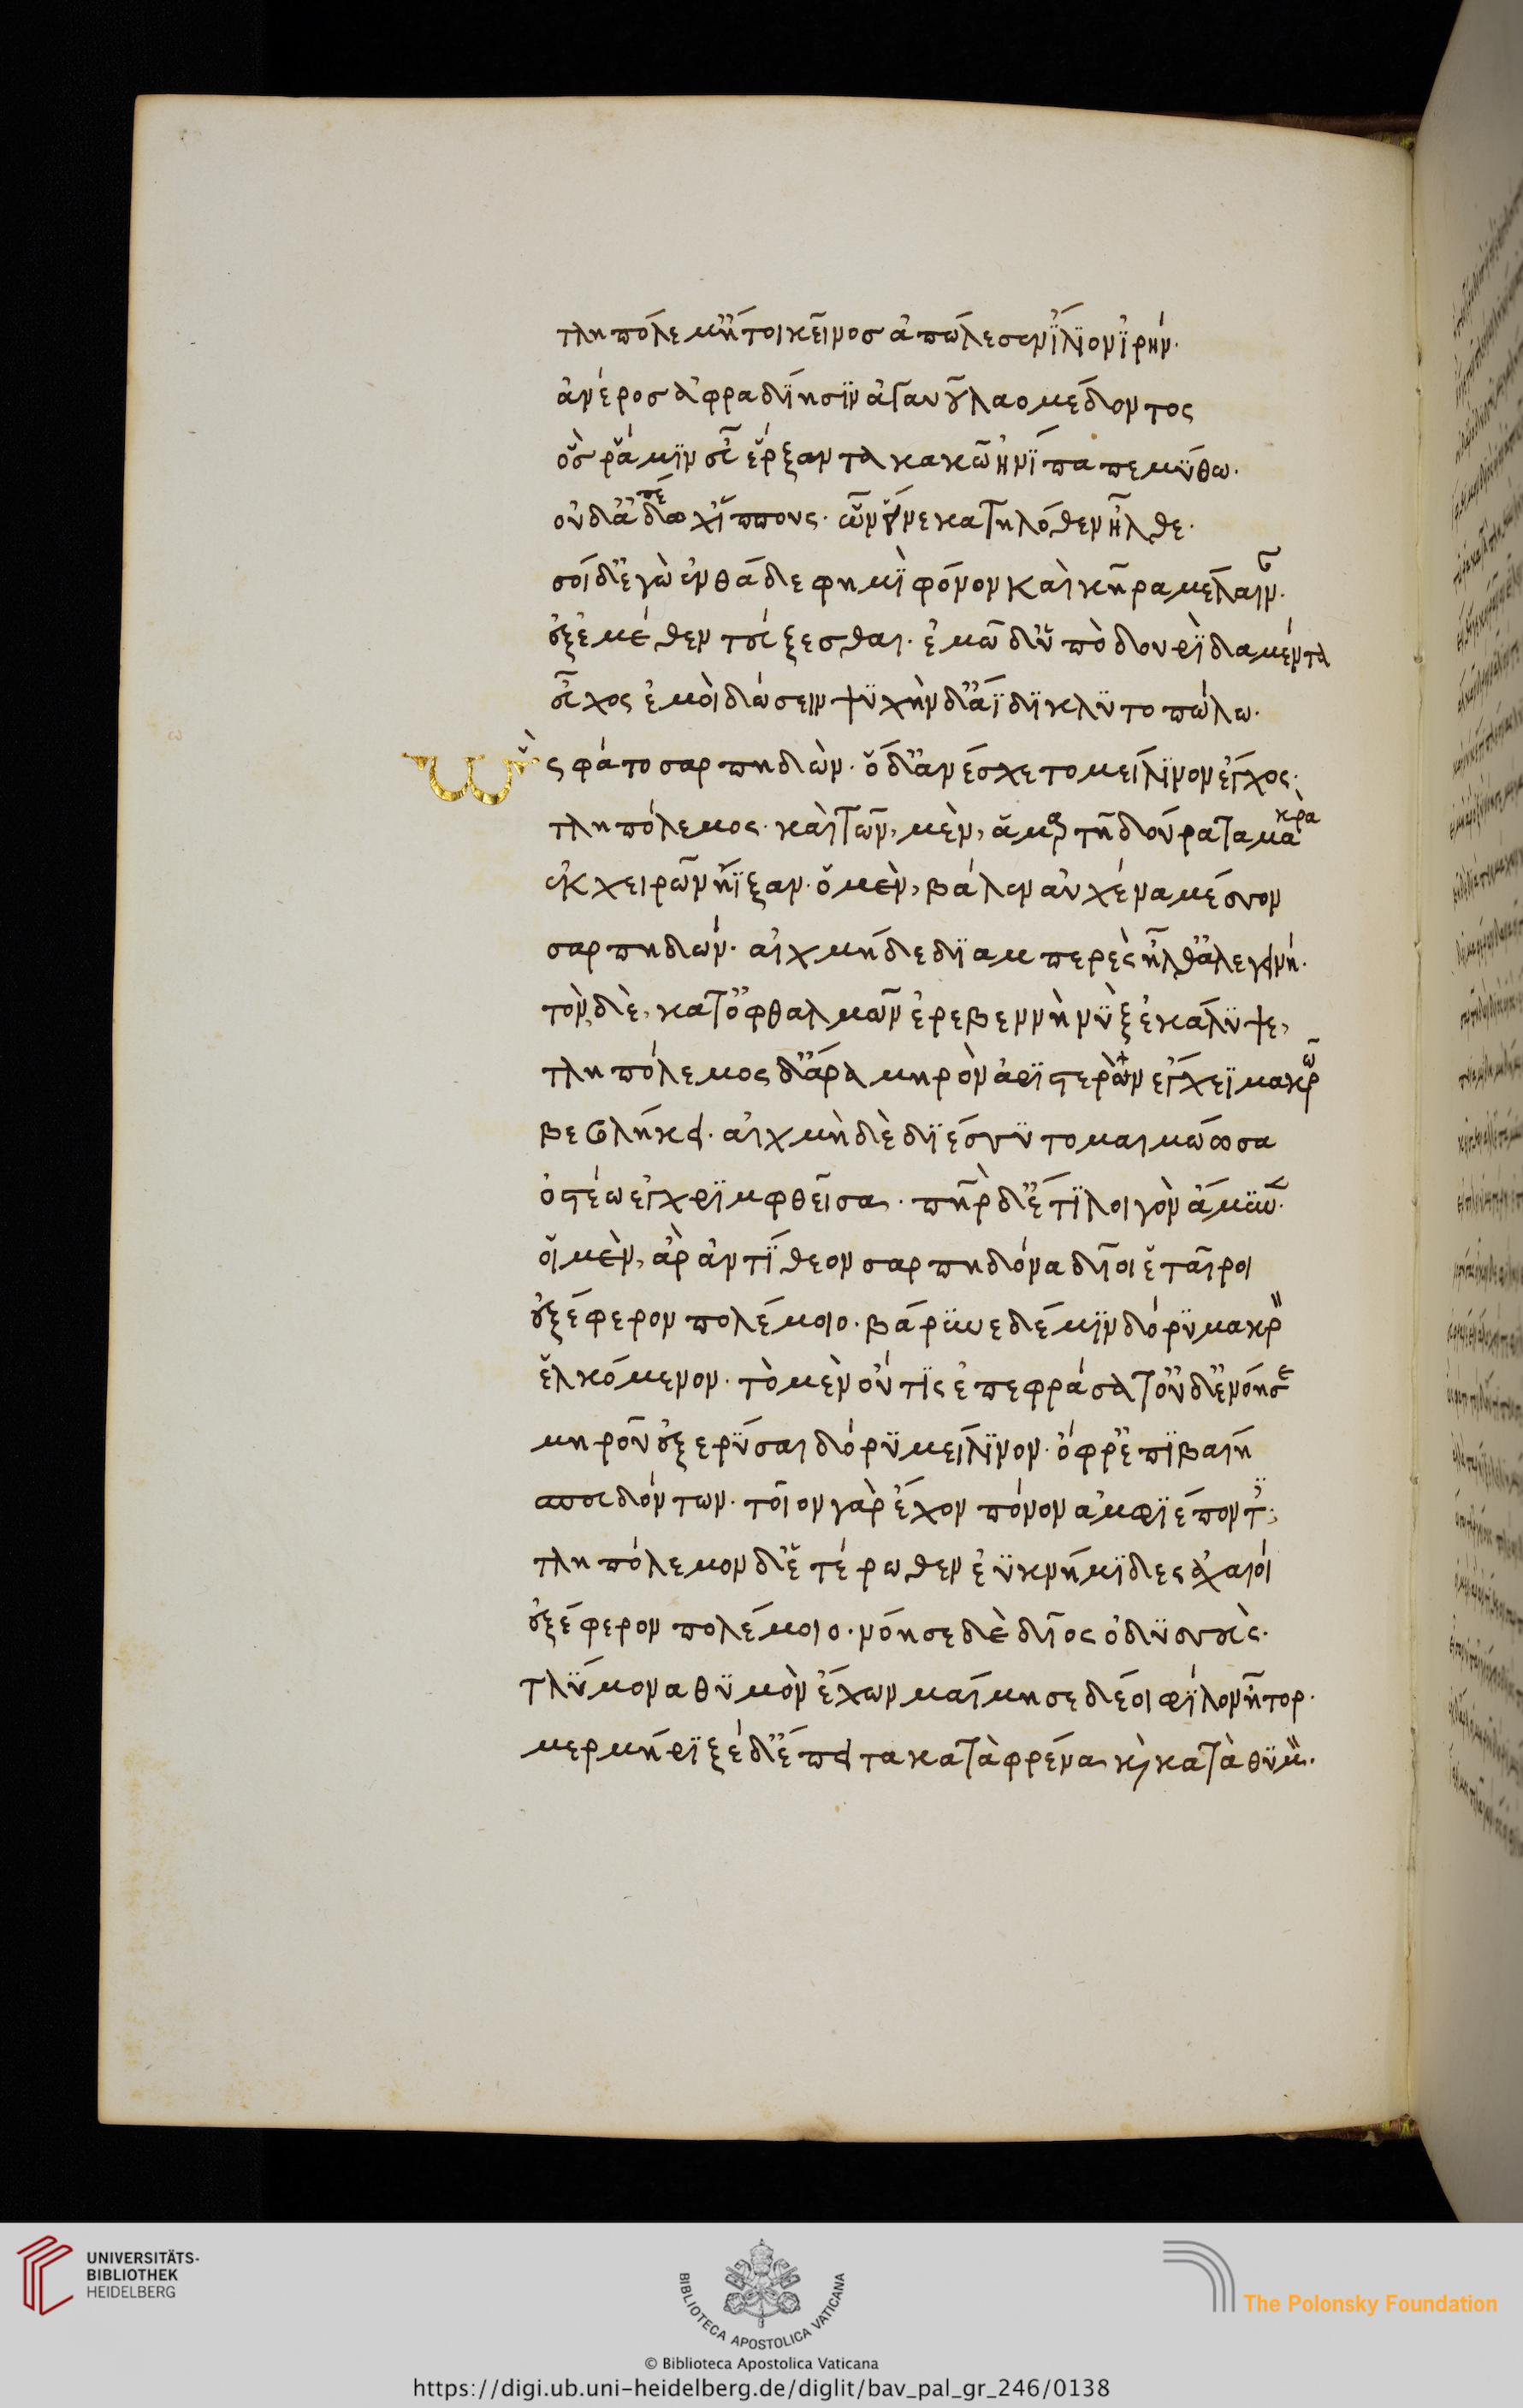 τληπόλεμ' ἤτοι κεῖνος ἀπώλεσεν ἴλιον ἱρήν·
ἀνέρος ἀφραδίησιν ἀγαυοῦ λαομέδοντος
ὅς ῥά μιν εὖ ἔρξαντα κακῶ ἠνίπαπε μύθω·
οὐδ' ἀπέδωχ' ἵππους· ὧν οὕνεκα τηλόθεν ἦλθε·
σοὶ δ' ἐγὼ ἐνθάδε φημὶ φόνον καὶ κῆρα μέλαιναν·
ἐξ ἐμέθεν τεύξεσθαι· ἐμῶ δ' ὑπὸ δουρὶ δαμέντα
εὖχος ἐμοὶ δώσειν ψυχὴν δ' ἄϊδι κλυτοπώλω·
Ὣς φάτο σαρπηδὼν· ὁ δ' ἀνέσχετο μείλινον ἔγχος·
τληπόλεμος· καὶ τῶν, μὲν, ἁμαρτῆ δούρατα μακρὰ
ἐκ χειρῶν ἤϊξαν· ὁ μὲν, βάλεν αὐχένα μέσσον
σαρπηδών· αἰχμὴ δὲ διαμπερὲς ἦλθ' ἀλεγεινή·
τὸν δὲ, κατ' ὀφθαλμῶν ἐρεβεννὴ νὺξ ἐκάλυψε,
τληπόλεμος δ' ἄρα μηρὸν ἀριστερὸν ἔγχεϊ μακρῶ
βεβλήκει· αἰχμὴ δὲ διέσσυτο μαιμώωσα
ὀστέω ἐγχριμφθεῖσα· πατὴρ δ' ἔτι λοιγὸν ἄμυνεν·
οἱ μὲν, ἄρ' ἀντίθεον σαρπηδόνα δῖοι ἑταῖροι
ἐξέφερον πολέμοιο· βάρυνε δέ μιν δόρυ μακρὸν
ἑλκόμενον· τὸ μὲν οὔτις ἐπεφράσατ' οὐδ' ἐνόησε
μηροῦ ἐξερύσαι δόρυ μείλινον· ὄφρ' ἐπιβαίη
σπευδόντων· τοῖον γὰρ ἔχον πόνον ἀμφιέποντες·
τληπόλεμον δ' ἑτέρωθεν ἐϋκνήμιδες ἀχαιοὶ
ἐξέφερον πολέμοιο· νόησε δὲ δῖος ὀδυσσεὺς·
τλήμονα θυμὸν ἔχων μαίμησε δέ οἱ φίλον ἦτορ·
μερμήριξε δ' ἔπειτα κατὰ φρένα καὶ κατὰ θυμὸν·
UNIVERSITÄTS-
BIBLIOTHEK
HEIDELBERG
BIBLIOTECA APOSTOLICA VATICANA
The Polonsky Foundation
© Biblioteca Apostolica Vaticana
https://digi.ub.uni-heidelberg.de/diglit/bav_pal_gr_246/0138